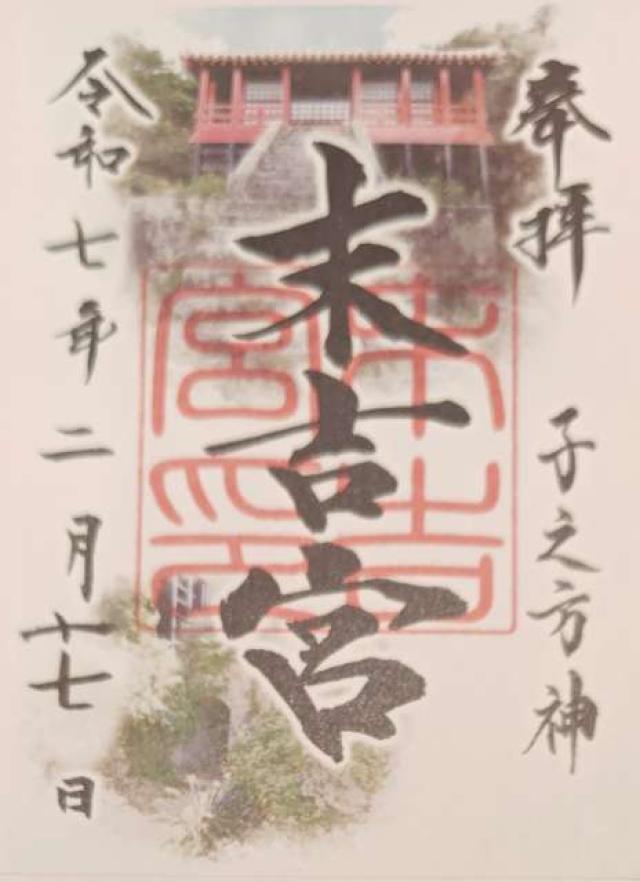 奉拝
子之方神
末吉宮
末吉宮印
令和七年二月十七日